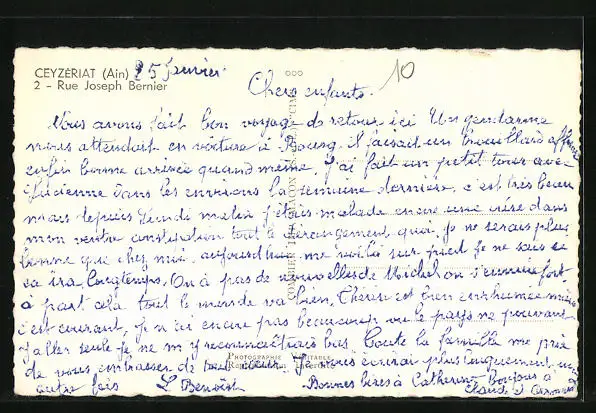 CEYZÉRIAT (Ain) 25 Janvier
2 - Rue Joseph Bernier
10
Chers enfants.
Nous avons fait bon voyage de retour ici Un gendarme
nous attendait en voiture à Bourg, il faisait un brouillard affreux
enfin bonne arrivée quand même, j'ai fait un petit tour avec
Lucienne dans les environs la semaine dernière, c'est très beau
mais depuis lundi matin j'étais malade encore une crise dans
mon ventre constipation tout le dérangement quoi, je ne serais plus
bonne que chez moi, aujourd'hui me voilà sur pied je ne sais si
ca ira longtemps. On à pas de nouvelles de Michel on s'ennuie fort
à part cela tout le monde va bien, est bien enrhumée mais
c'est courant, je n'ai encore pas beaucoup vu le pays ne pouvant
y aller seule je ne m'y reconnaîtrais pas. Toute la famille me prie
de vous embrasser de tout coeur. Je vous écrirai plus longuement une
autre fois L. Benoist Bonnes bises à Catherine Bonjour à
PHOTOGRAPHIE VÉRITABLE